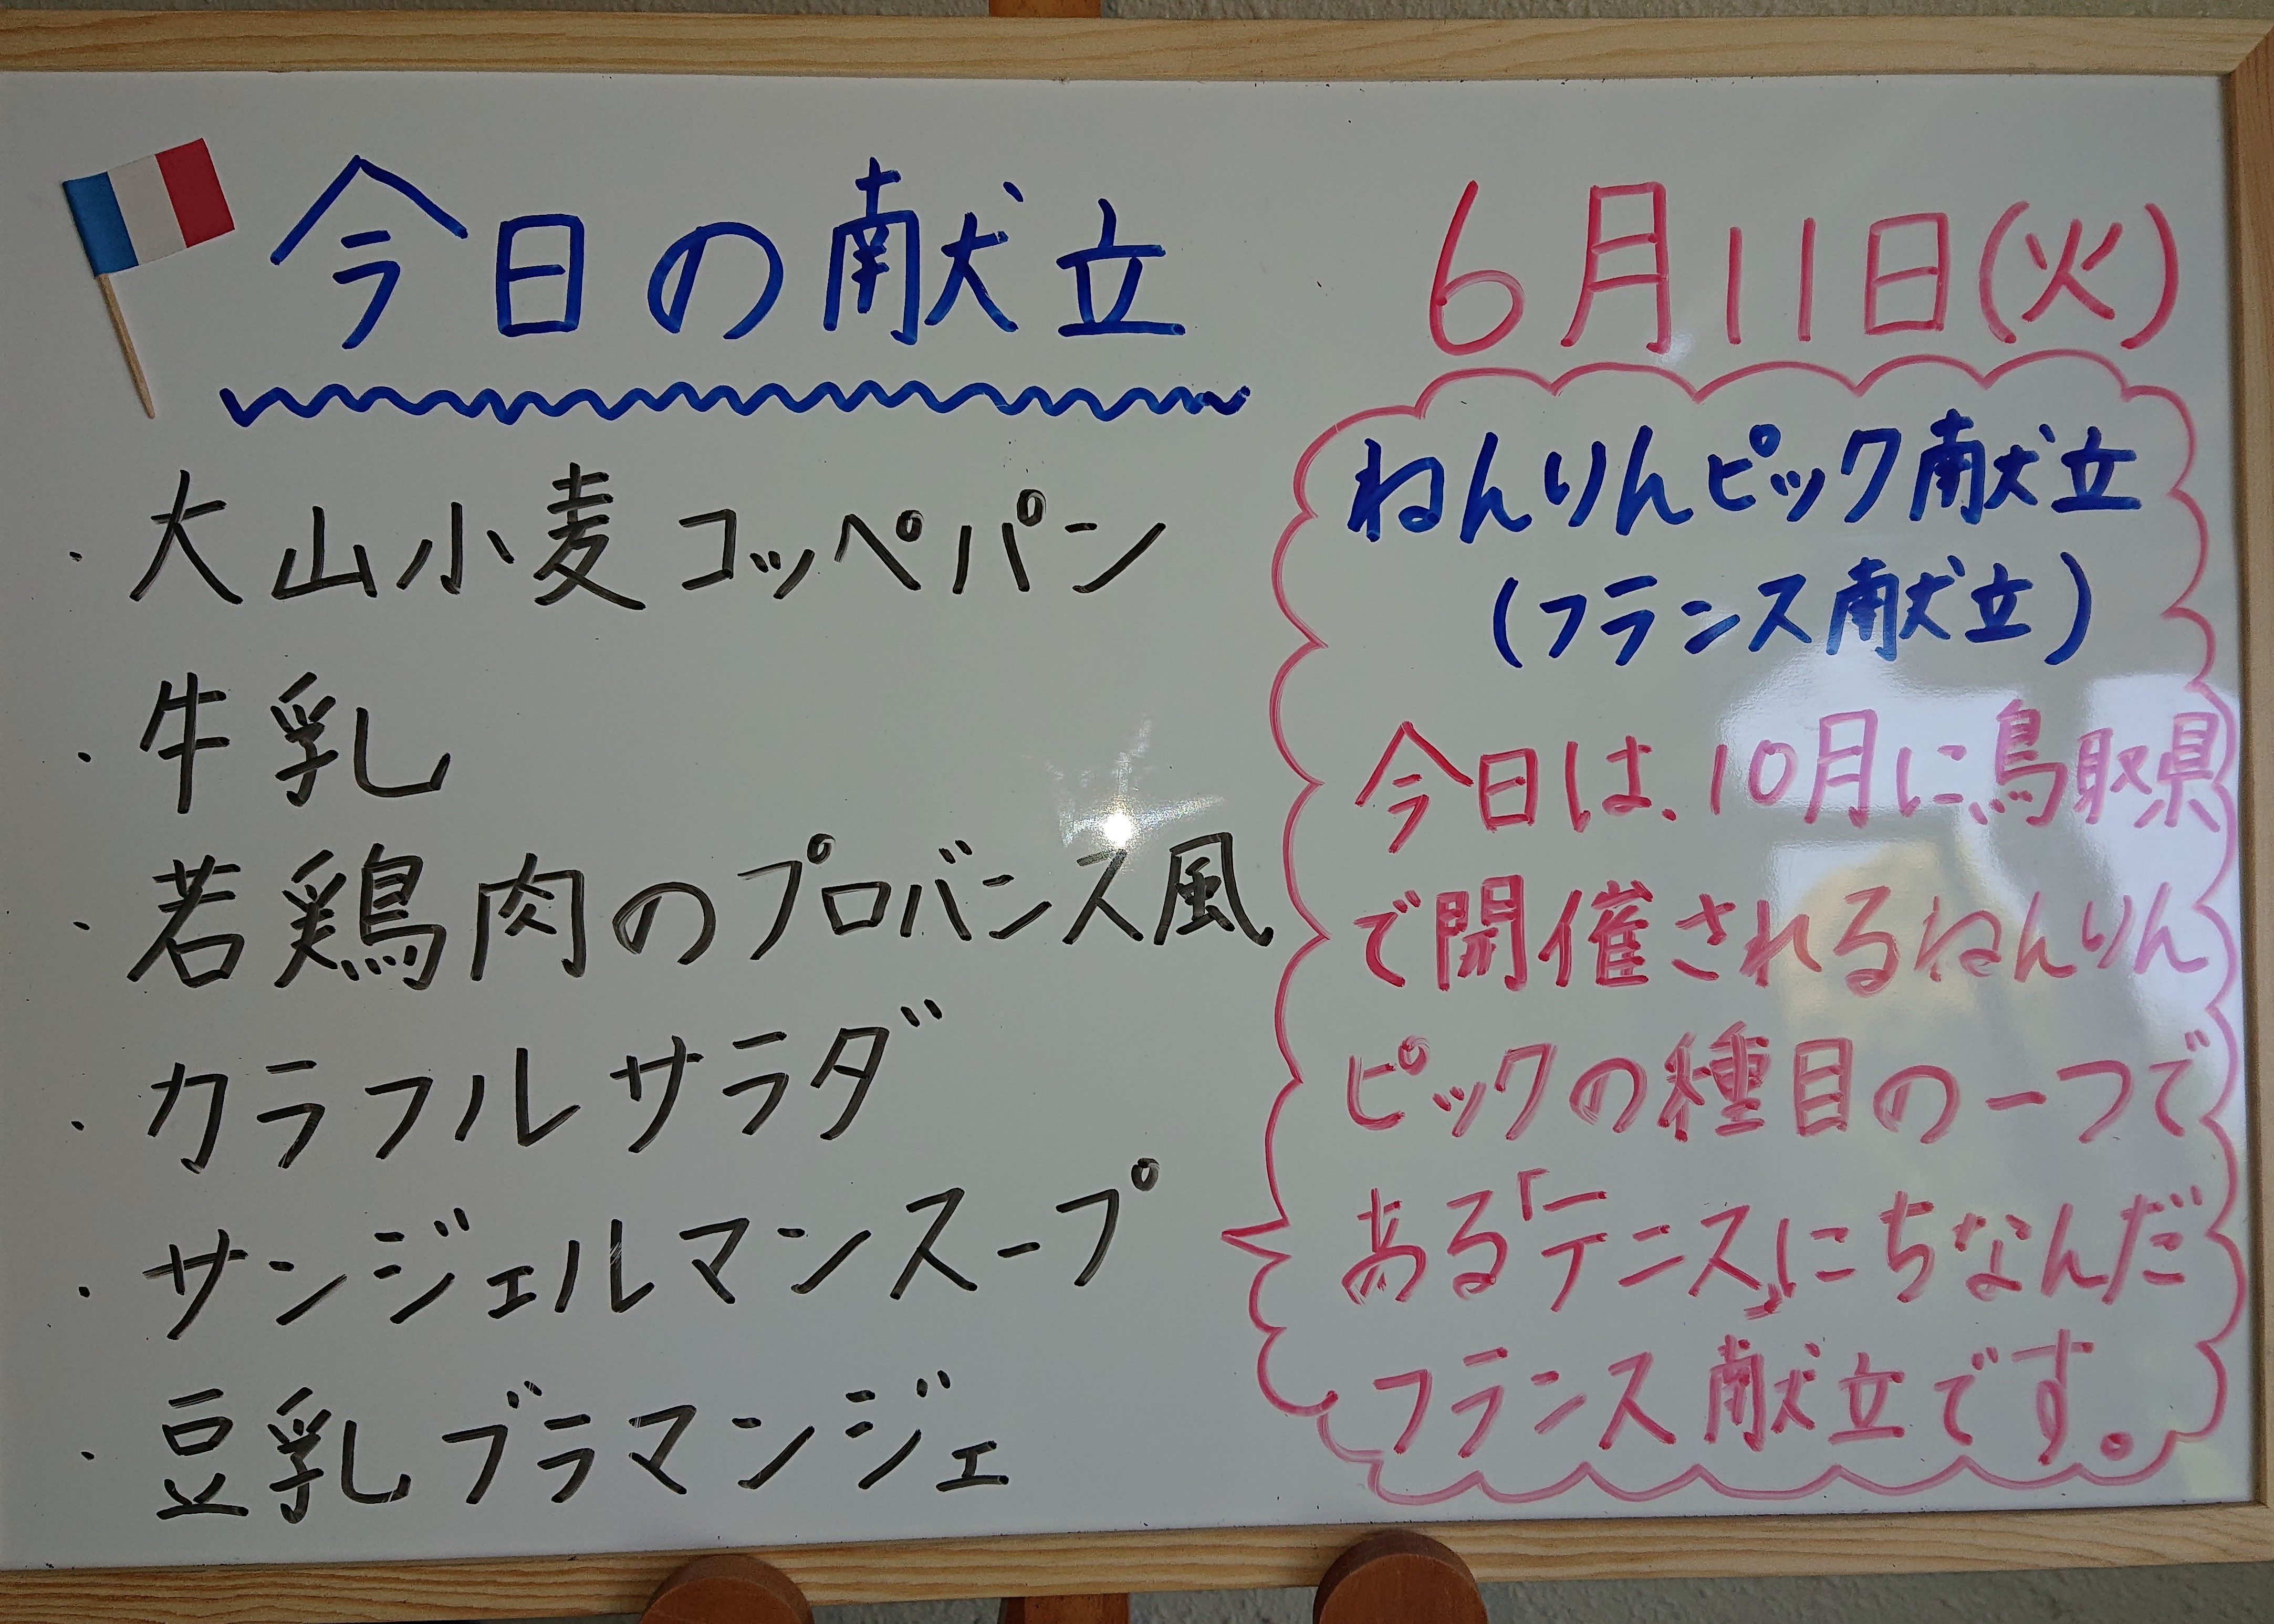 今日の献立
・大山小麦コッペパン
・牛乳
・若鶏肉のプロバンス風
・カラフルサラダ
・サンジェルマンスープ
・豆乳ブラマンジェ
6月11日(火)
ねんりんピック献立
(フランス献立)
今日は、10月に鳥取県
で開催されるねんりん
ピックの種目の一つで
ある「テニス」にちなんだ
フランス献立です。